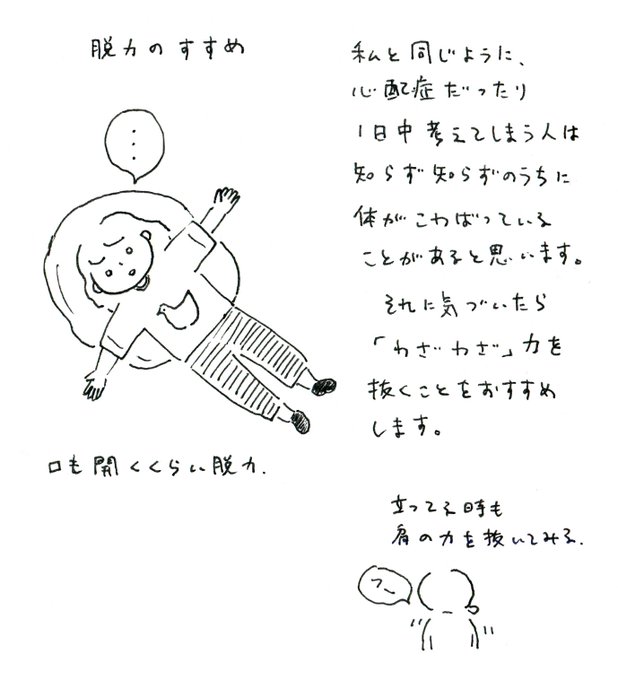 脱力のすすめ
…
口も開くくらい脱力.
私と同じように、
心配症だったり
1日中考えてしまう人は
知らず知らずのうちに
体がこわばっている
ことがあると思います。
それに気づいたら
「わざわざ」力を
抜くことをおすすめ
します。
立ってる時も
肩の力を抜いてみる.
フー